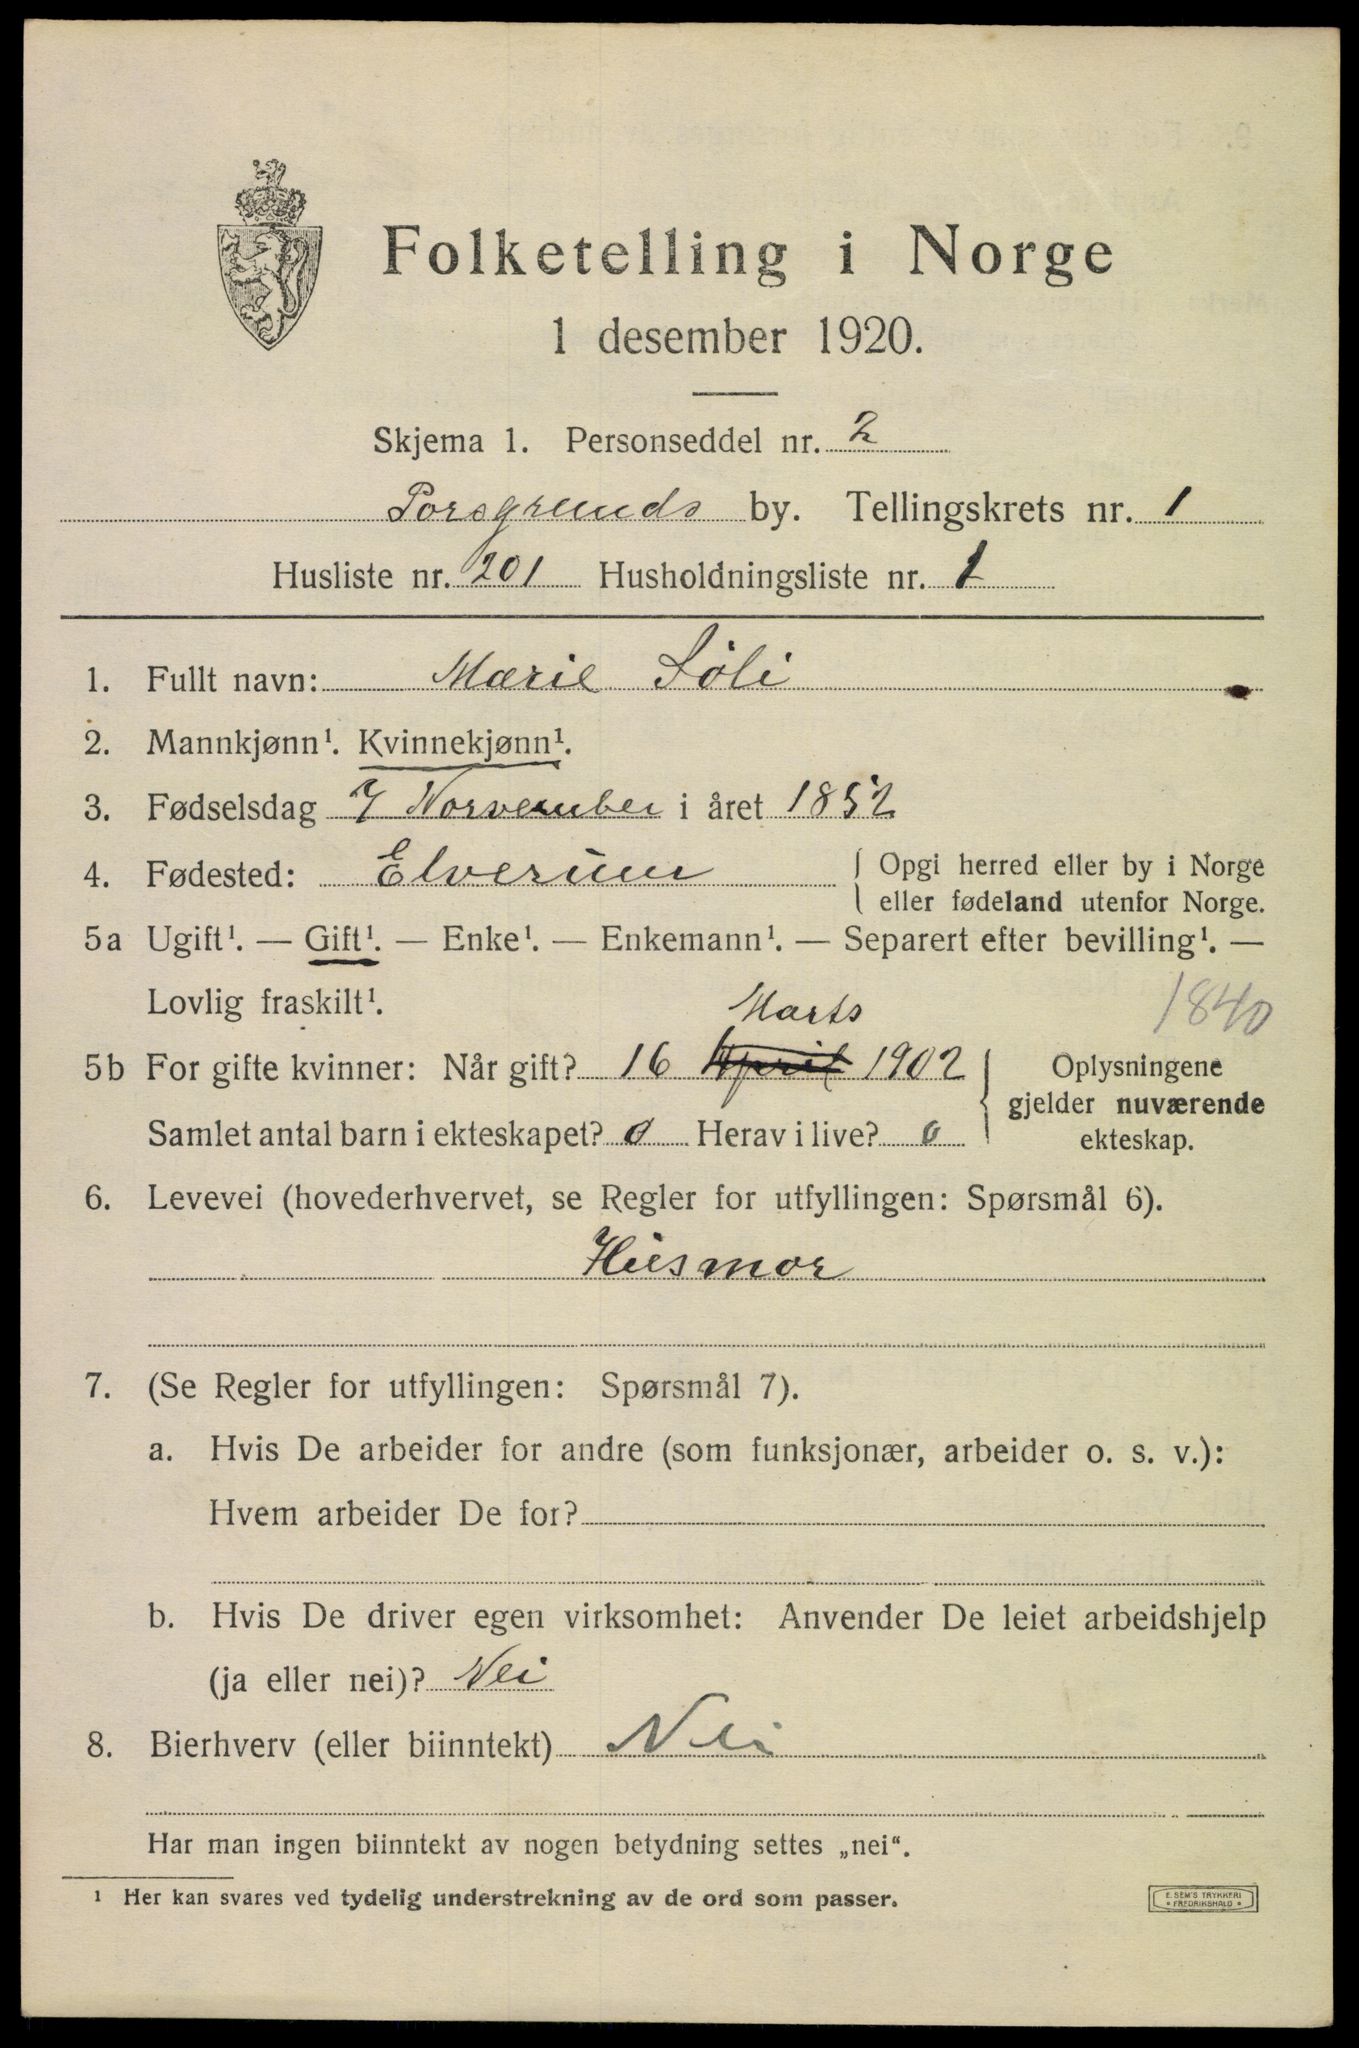 Folketelling i Norge
1 desember 1920.
Skjema 1. Personseddel nr. 2
Porsgrunds by. Tellingskrets nr. 1
Husliste nr. 201 Husholdningsliste nr. 1
1. Fullt navn: Marie Søli
2. Mannkjønn¹. Kvinnekjønn¹.
3. Fødselsdag 7 Norvember i året 1852
4. Fødested: Elverum { Opgi herred eller by i Norge
eller fødeland utenfor Norge.
5a Ugift¹. — Gift¹. — Enke¹. — Enkemann¹. — Separert efter bevilling¹. —
Lovlig fraskilt¹.
1840
Marts
5b For gifte kvinner: Når gift? 16 April 1902 { Oplysningene
gjelder nuværende
Samlet antal barn i ekteskapet? 0 Herav i live? 0 ekteskap.
6. Levevei (hovederhvervet, se Regler for utfyllingen: Spørsmål 6).
Husmor
7. (Se Regler for utfyllingen: Spørsmål 7).
a. Hvis De arbeider for andre (som funksjonær, arbeider o. s. v.):
Hvem arbeider De for?
b. Hvis De driver egen virksomhet: Anvender De leiet arbeidshjelp
(ja eller nei)? Nei
8. Bierhverv (eller biinntekt) Nei
Har man ingen biinntekt av nogen betydning settes „nei“.
¹ Her kan svares ved tydelig understrekning av de ord som passer.
E. SEM'S TRYKKERI
• FREDRIKSHALD •